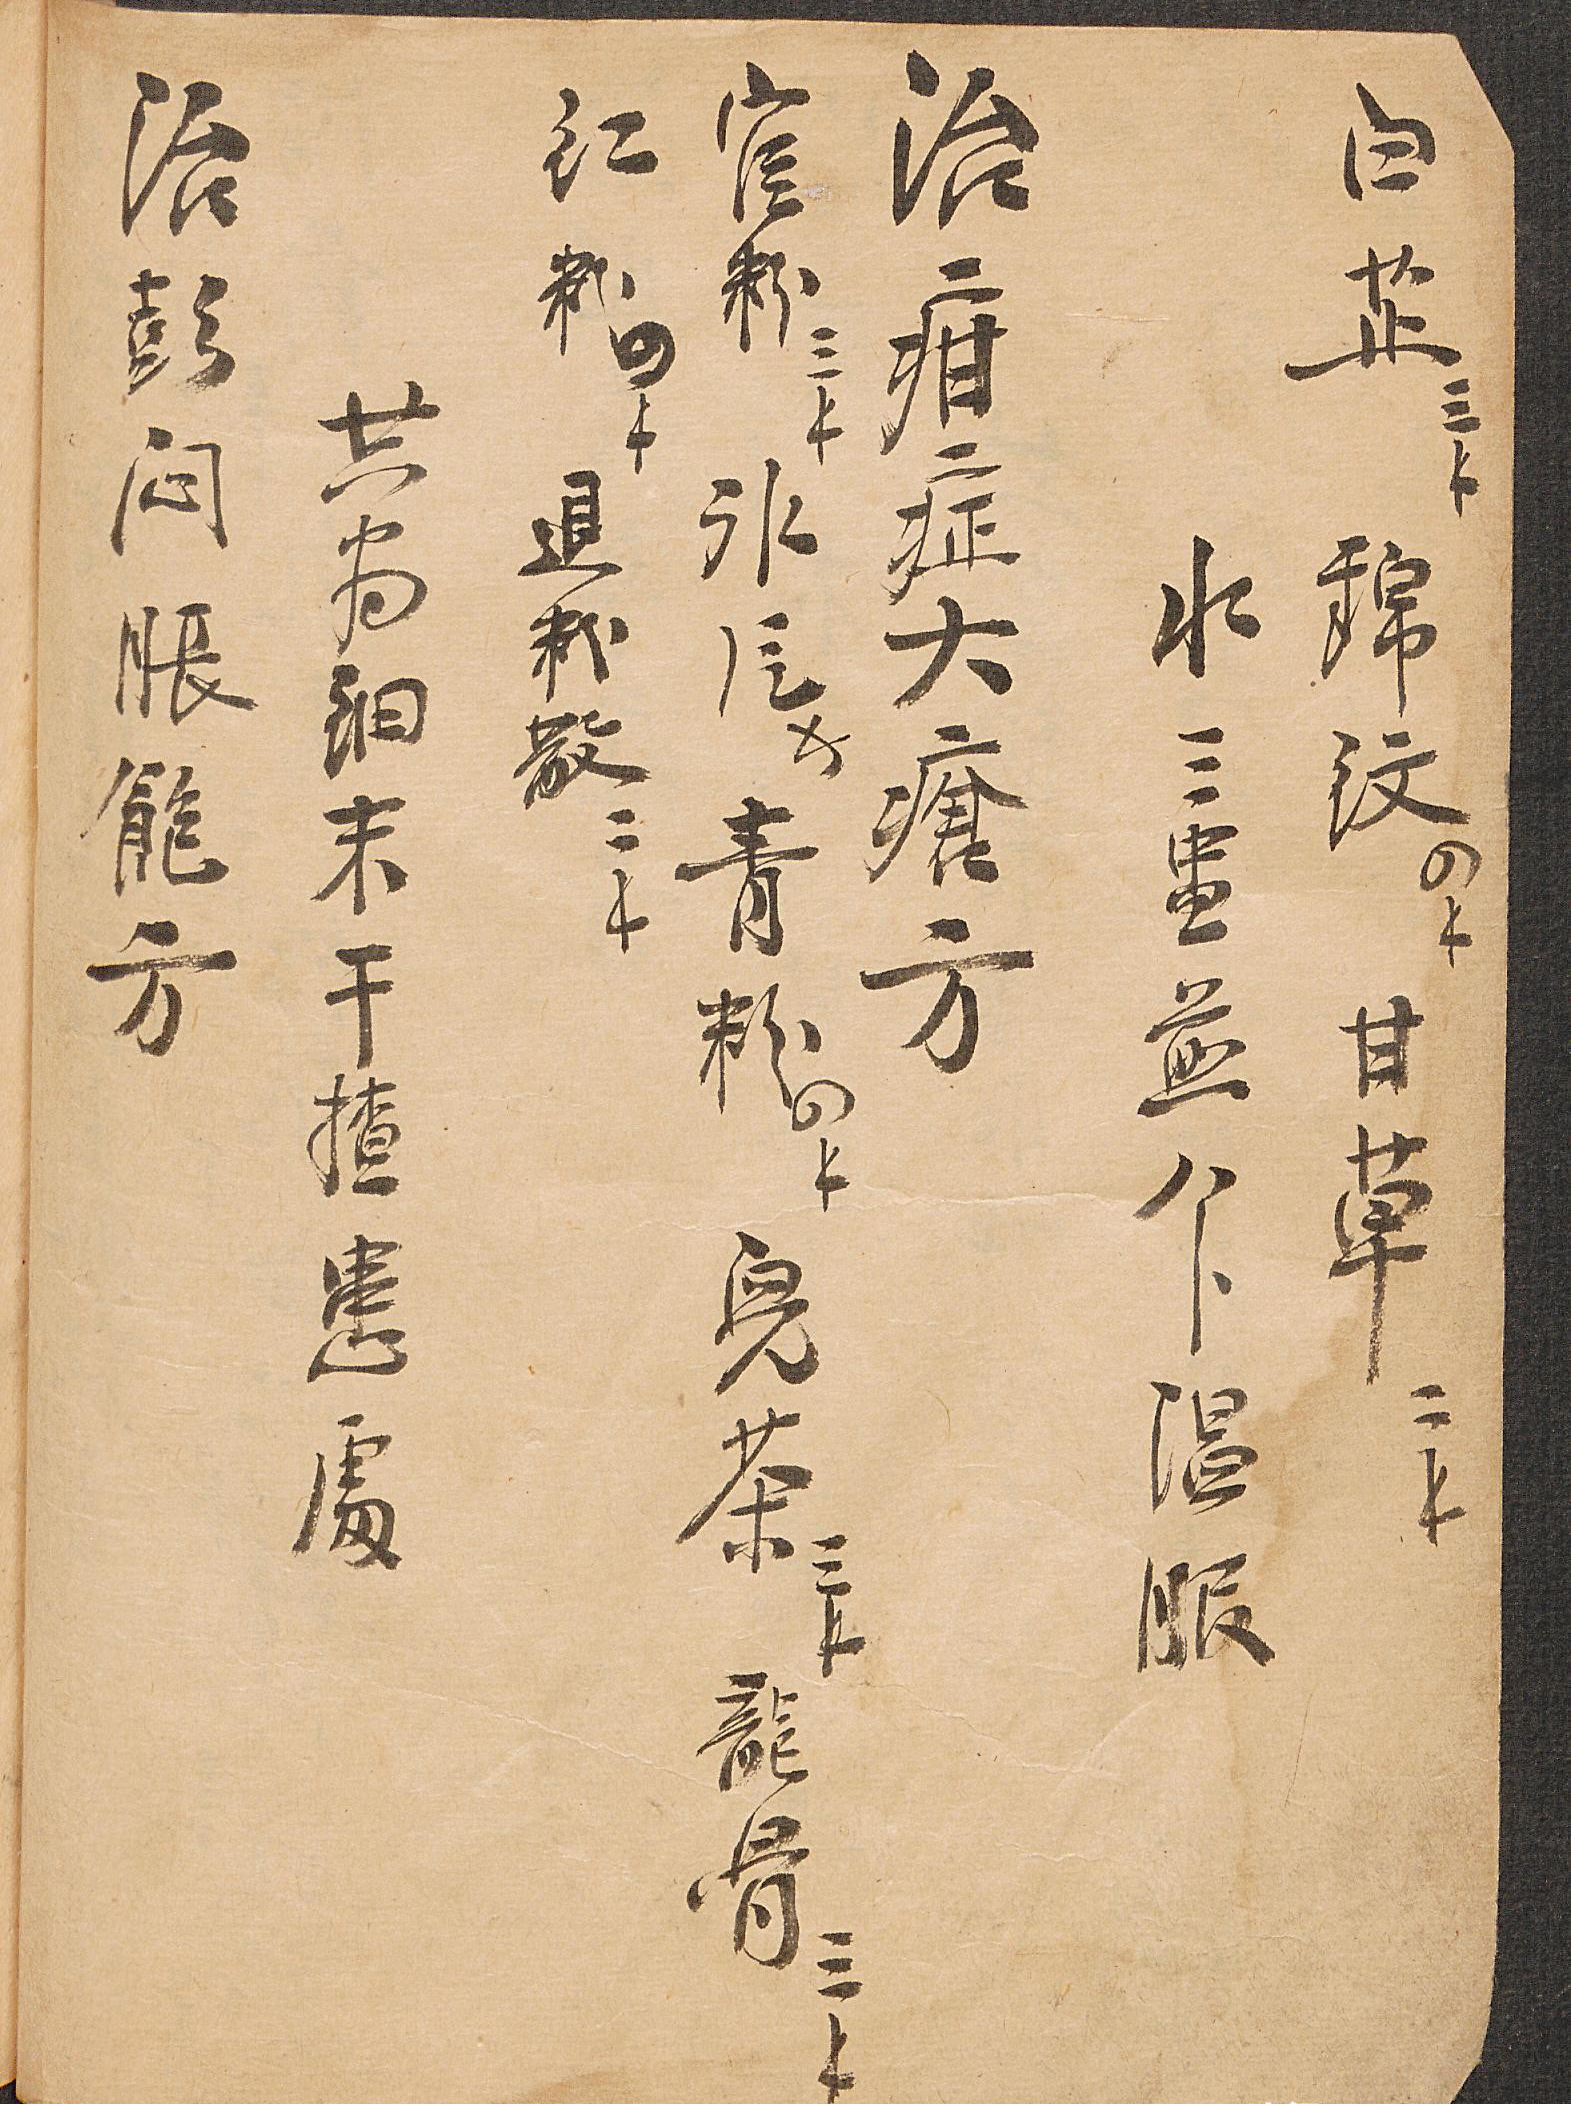 白芷三卜 錦紋四卜 甘草二卜
水三盅並个卜温服
治疳症大瘡方
官粉三卜 氷片メ 青粉四卜 兒茶三卜 龍骨三卜
紅粉四卜 退粉散二卜
共為細末干揸患處
治彭悶脹飽方